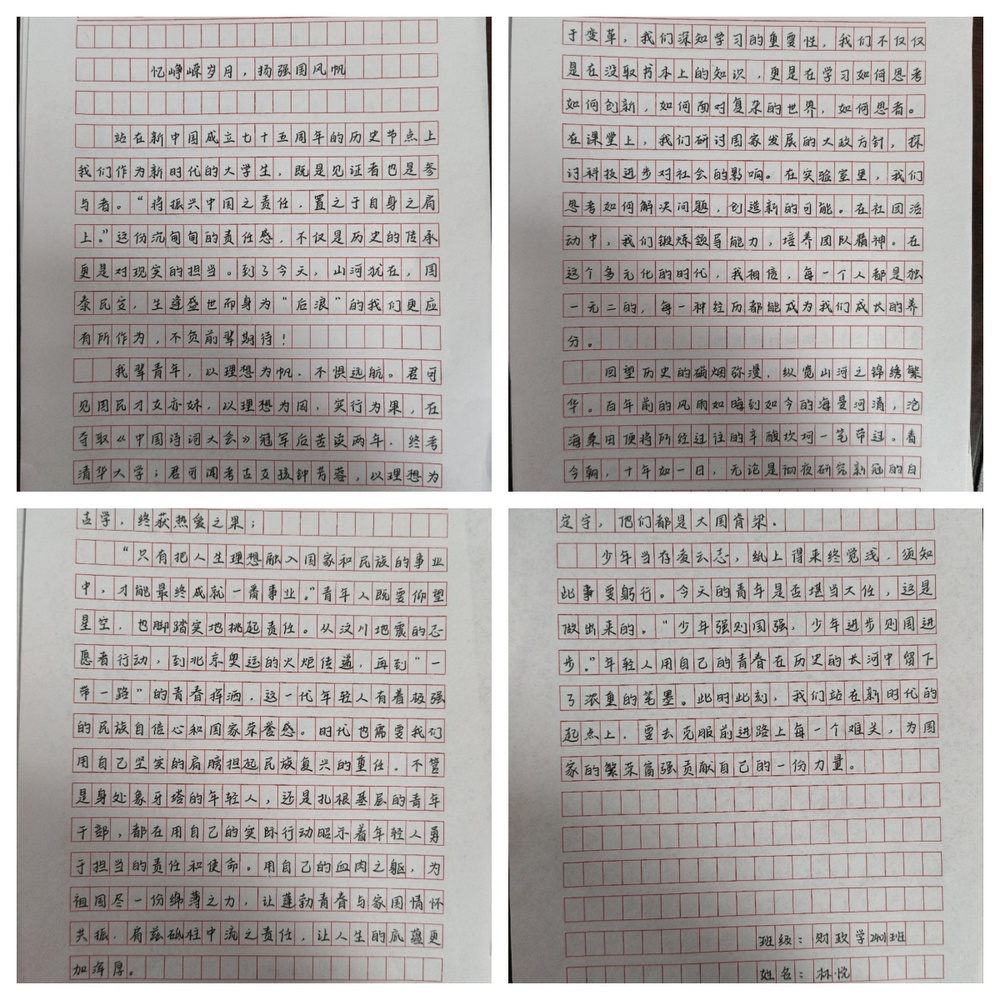 忆峥嵘岁月，扬强国风帆
站在新中国成立七十五周年的历史节点上
我们作为新时代的大学生，既是见证者也是参
与者。“将振兴中国之责任，置之于自身之肩
上。”这份沉甸甸的责任感，不仅是历史的传承
更是对现实的担当。到了今天，山河犹在，国
泰民安，生逢盛世而身为“后浪”的我们更应
有所作为，不负前辈期待！
我辈青年，以理想为帆，不惧远航。君可
见国民才女亦姝，以理想为因，实行为果，在
夺取《中国诗词大会》冠军后苦读两年，终考
清华大学；君可闻考古女孩钟芳蓉，以理想为
古学，终获热爱之果；
“只有把人生理想融入国家和民族的事业
中，才能最终成就一番事业。”青年人既要仰望
星空，也脚踏实地挑起责任。从汶川地震的志
愿者行动，到北京奥运的火炬传递，再到“一
带一路”的青春挥洒，这一代年轻人有着极强
的民族自信心和国家荣誉感。时代也需要我们
用自己坚实的肩膀担起民族复兴的重任。不管
是身处象牙塔的年轻人，还是扎根基层的青年
干部，都在用自己的实际行动昭示着年轻人勇
于担当的责任和使命。用自己的血肉之躯，为
祖国尽一份绵薄之力，让蓬勃青春与家国情怀
共振，肩兹砥柱中流之责任，让人生的底蕴更
加浑厚。
于变革，我们深知学习的重要性，我们不仅仅
是在汲取书本上的知识，更是在学习如何思考
如何创新，如何面对复杂的世界，如何思者。
在课堂上，我们研讨国家发展的大政方针，探
讨科技进步对社会的影响。在实验室里，我们
思考如何解决问题，创造新的可能。在社团活
动中，我们锻炼领导能力，培养团队精神。在
这个多元化的时代，我相信，每一个人都是独
一无二的，每一种经历都能成为我们成长的养
分。
回望历史的硝烟弥漫，纵览山河之锦绣繁
华。百年前的风雨如晦到如今的海晏河清，沧
海桑田顷将所经过往的辛酸坎坷一笔带过。看
今朝，十年如一日，无论是彻夜研究新冠的白
定宇，他们都是大国脊梁。
少年当存凌云志，纸上得来终觉浅，须知
此事要躬行。今天的青年是否堪当大任，这是
做出来的。“少年强则国强，少年进步则国进
步。”年轻人用自己的青春在历史的长河中留下
了浓重的笔墨。此时此刻，我们站在新时代的
起点上，要去克服前进路上每一个难关，为国
家的繁荣富强贡献自己的一份力量。
班级：财政学2401班
姓名：林悦